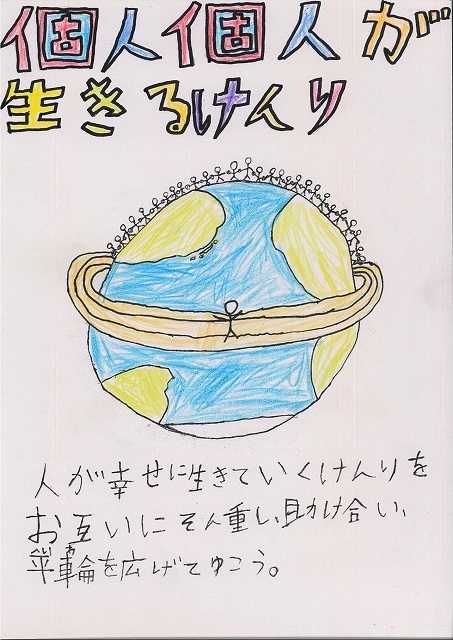 個人個人が
生きるけんり
人が幸せに生きていくけんりを
お互いにそん重し、助け合い、
輪を広げてゆこう。